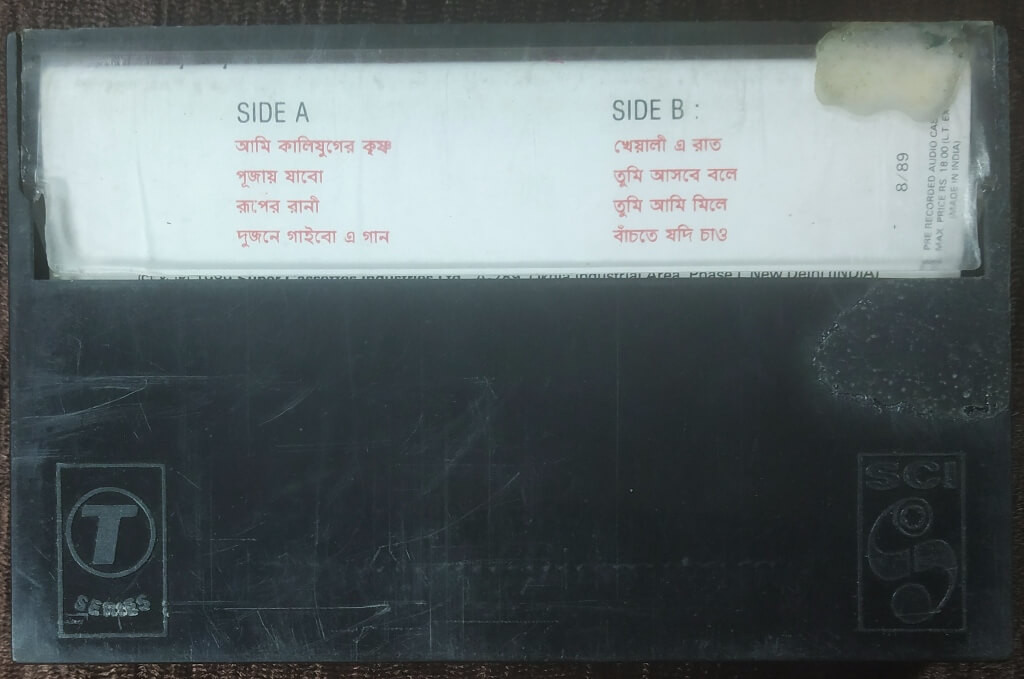 SIDE A
আমি কালিযুগের কৃষ্ণ
পূজায় যাবো
রূপের রানী
দুজনে গাইবো এ গান
SIDE B :
খেয়ালী এ রাত
তুমি আসবে বলে
তুমি আমি মিলে
বাঁচতে যদি চাও
8/89
PRE RECORDED AUDIO
MAX PRICE RS. 18.00 (L.T.
MADE IN INDIA)
1989 Super Cassettes Industries Ltd. Industrial Area, Phase I, New Delhi (INDIA)
T
SERIES
SCI